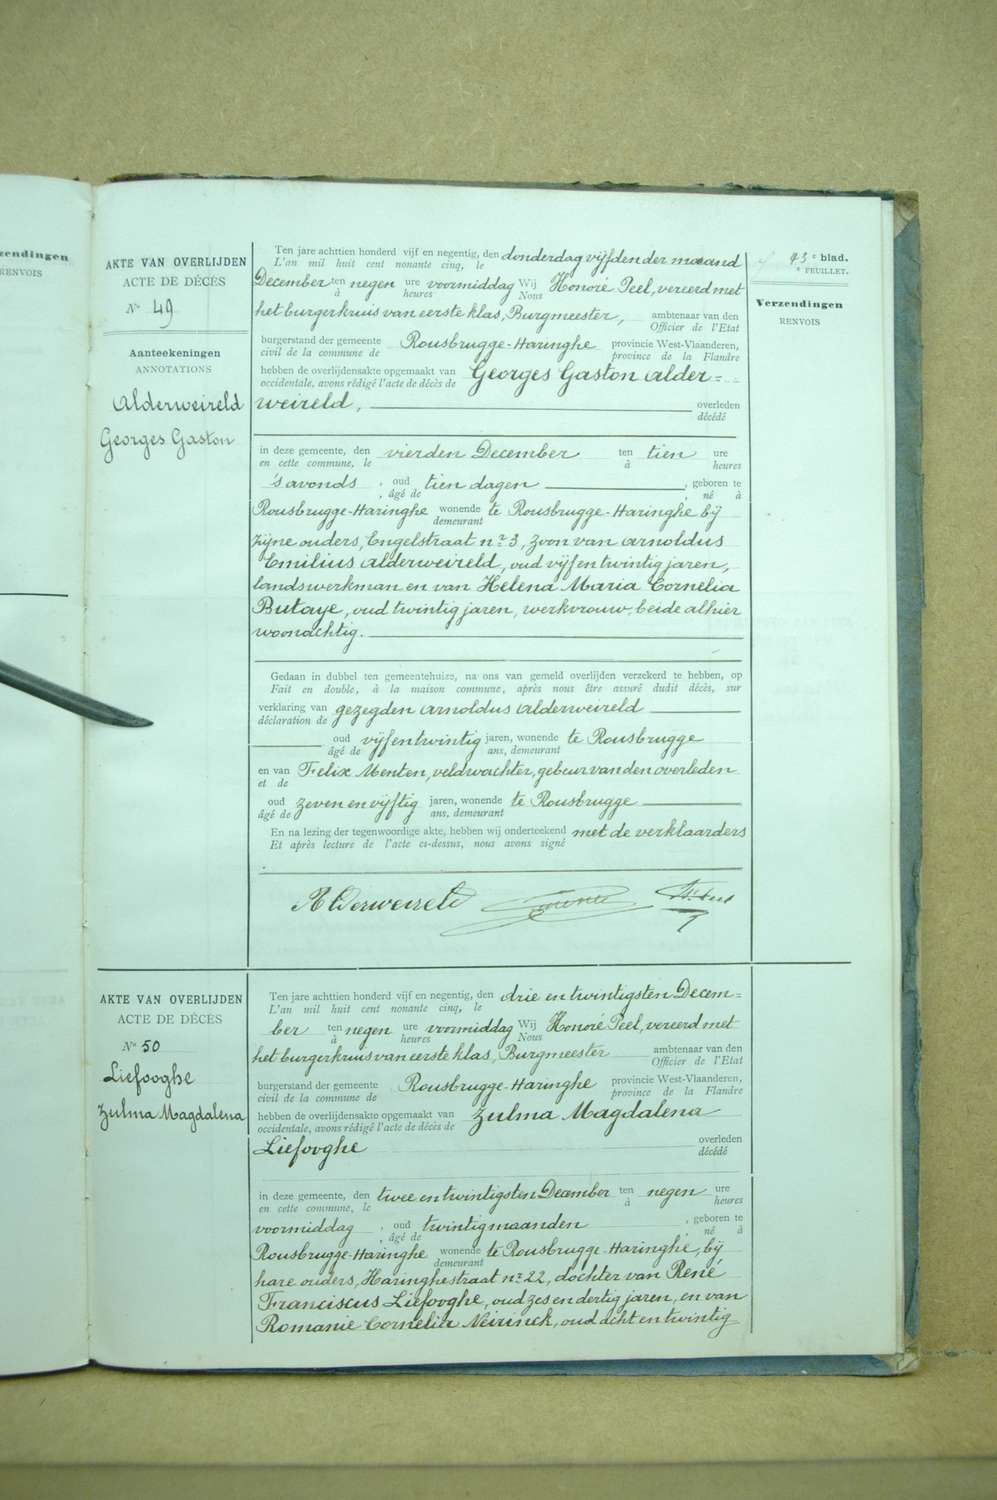 zendingen
RENVOIS
AKTE VAN OVERLIJDEN
ACTE DE DÉCÈS
No 49
Aanteekeningen
ANNOTATIONS
Alderweireld
Georges Gaston
Ten jare achttien honderd vijf en negentig, den donderdag vijfden der maand
L'an mil huit cent nonante cinq, le
December ten negen ure voormiddag Wij Honoré Peel, vereerd met
à heures Nous
het burgerkruis van eerste klas, Burgmeester, ambtenaar van den
Officier de l'Etat
burgerstand der gemeente Rousbrugge-Haringhe provincie West-Vlaanderen,
civil de la commune de province de la Flandre
hebben de overlijdensakte opgemaakt van Georges Gaston Alder=
occidentale, avons rédigé l'acte de décès de
weireld, overleden
décédé
in deze gemeente, den vierden December ten tien ure
en cette commune, le à heures
's avonds , oud tien dagen , geboren te
, âgé de , né à
Rousbrugge-Haringhe wonende te Rousbrugge-Haringhe bij
demeurant
zijne ouders, Engelstraat no 3, zoon van Arnoldus
Emilius Alderweireld, oud vijfentwintig jaren,
landswerkman en van Helena Maria Cornelia
Butaye, oud twintig jaren, werkvrouw, beide alhier
woonachtig.
Gedaan in dubbel ten gemeentehuize, na ons van gemeld overlijden verzekerd te hebben, op
Fait en double, à la maison commune, après nous être assuré dudit décès, sur
verklaring van gezegden Arnoldus Alderweireld
déclaration de
oud vijfentwintig jaren, wonende te Rousbrugge
âgé de ans, demeurant
en van Felix Menten, veldwachter, gebeur van den overleden
et de
oud zeven en vijftig jaren, wonende te Rousbrugge
âgé de ans, demeurant
En na lezing der tegenwoordige akte, hebben wij onderteekend met de verklaarders
Et après lecture de l'acte ci-dessus, nous avons signé
Alderweireld
93e blad.
e FEUILLET.
Verzendingen
RENVOIS
AKTE VAN OVERLIJDEN
ACTE DE DÉCÈS
No 50
Liefooghe
Zulma Magdalena
Ten jare achttien honderd vijf en negentig, den drie en twintigsten Decem=
L'an mil huit cent nonante cinq, le
ber ten negen ure voormiddag Wij Honoré Peel, vereerd met
à heures Nous
het burgerkruis van eerste klas, Burgmeester ambtenaar van den
Officier de l'Etat
burgerstand der gemeente Rousbrugge-Haringhe provincie West-Vlaanderen,
civil de la commune de province de la Flandre
hebben de overlijdensakte opgemaakt van Zulma Magdalena
occidentale, avons rédigé l'acte de décès de
Liefooghe overleden
décédé
in deze gemeente, den twee en twintigsten December ten negen ure
en cette commune, le à heures
voormiddag , oud twintig maanden , geboren te
, âgé de , né à
Rousbrugge-Haringhe wonende te Rousbrugge-Haringhe, bij
demeurant
hare ouders, Haringhestraat no 22, dochter van René
Franciscus Liefooghe, oud zes en dertig jaren, en van
Romanie Cornelia Neirinck, oud acht en twintig